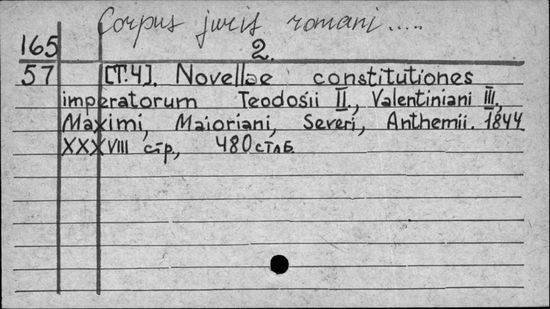 Corpus juris romani ....
165 2.
57 [T.4]. Novellae constitutiones
imperatorum Teodosii II., Valentiniani III.,
Maximi, Maioriani, Severi, Anthemii. 1844.
XXXVIII стр, 480 стлб.